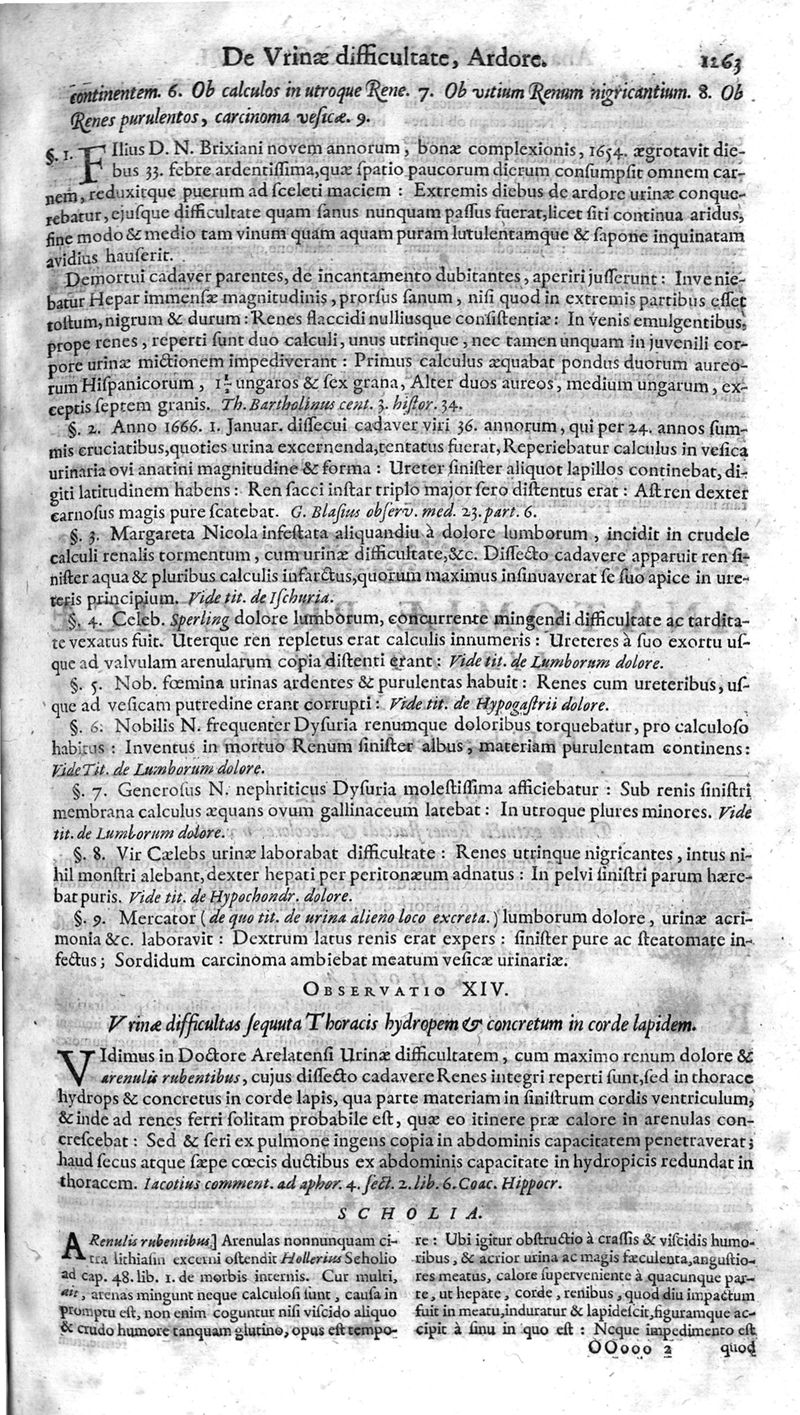 De Vrinæ difficultate, Ardore. 1263
continentem. 6. Ob calculos in utroque Rene. 7. Ob vitium Renum nigricantium. 8. Ob
Renes purulentos, carcinoma vesicæ. 9.
§. 1. FIlius D. N. Brixiani novem annorum, bonæ complexionis, 1654. ægrotavit die-
bus 33. febre ardentissima, quæ spatio paucorum dierum consumpsit omnem car-
nem, reduxitque puerum ad sceleti maciem : Extremis diebus de ardore urinæ conque-
rebatur, ejusque difficultate quam sanus nunquam passus fuerat, licet siti continua aridus,
sine modo & medio tam vinum quam aquam puram lutulentamque & sapone inquinatam
avidius hauserit.
Demortui cadaver parentes, de incantamento dubitantes, aperiri jusserunt : Invenie-
batur Hepar immensæ magnitudinis, prorsus sanum, nisi quod in extremis partibus esset
tostum, nigrum & durum : Renes flaccidi nulliusque consistentiæ : In venis emulgentibus,
prope renes, reperti sunt duo calculi, unus utrinque, nec tamen unquam in juvenili cor-
pore urinæ mictionem impediverant : Primus calculus æquabat pondus duorum aureo-
rum Hispanicorum, 1½ ungaros & sex grana, Alter duos aureos, medium ungarum, ex-
ceptis septem granis. Th. Bartholinus cent. 3. histor. 34.
§. 2. Anno 1666. 1. Januar. dissecui cadaver viri 36. annorum, qui per 24. annos sum-
mis cruciatibus, quoties urina excernenda, tentatus fuerat, Reperiebatur calculus in vesica
urinaria ovi anatini magnitudine & forma : Ureter sinister aliquot lapillos continebat, di-
giti latitudinem habens : Ren sacci instar triplo major sero distentus erat : Ast ren dexter
carnosus magis pure scatebat. G. Blasius observ. med. 23. part. 6.
§. 3. Margareta Nicola infestata aliquandiu à dolore lumborum, incidit in crudele
calculi renalis tormentum, cum urinæ difficultate, &c. Dissecto cadavere apparuit ren si-
nister aqua & pluribus calculis infarctus, quorum maximus insinuaverat se suo apice in ure-
teris principium. Vide tit. de Ischuria.
§. 4. Celeb. Sperling dolore lumborum, concurrente mingendi difficultate ac tardita-
te vexatus fuit. Uterque ren repletus erat calculis innumeris : Ureteres à suo exortu us-
que ad valvulam arenularum copia distenti erant : Vide tit. de Lumborum dolore.
§. 5. Nob. fœmina urinas ardentes & purulentas habuit : Renes cum ureteribus, us-
que ad vesicam putredine erant corrupti : Vide tit. de Hypogastrii dolore.
§. 6. Nobilis N. frequenter Dysuria renumque doloribus torquebatur, pro calculoso
habitus : Inventus in mortuo Renum sinister albus, materiam purulentam continens :
Vide Tit. de Lumborum dolore.
§. 7. Generosus N. nephriticus Dysuria molestissima afficiebatur : Sub renis sinistri
membrana calculus æquans ovum gallinaceum latebat : In utroque plures minores. Vide
tit. de Lumborum dolore.
§. 8. Vir Cælebs urinæ laborabat difficultate : Renes utrinque nigricantes, intus ni-
hil monstri alebant, dexter hepati per peritonæum adnatus : In pelvi sinistri parum hære-
bat puris. Vide tit. de Hypochondr. dolore.
§. 9. Mercator (de quo tit. de urina alieno loco excreta.) lumborum dolore, urinæ acri-
monia &c. laboravit : Dextrum latus renis erat expers : sinister pure ac steatomate in-
fectus ; Sordidum carcinoma ambiebat meatum vesicæ urinariæ.
OBSERVATIO XIV.
Vrinæ difficultas sequuta Thoracis hydropem & concretum in corde lapidem.
VIdimus in Doctore Arelatensi Urinæ difficultatem, cum maximo renum dolore &
arenulis rubentibus, cujus dissecto cadavere Renes integri reperti sunt, sed in thorace
hydrops & concretus in corde lapis, qua parte materiam in sinistrum cordis ventriculum,
& inde ad renes ferri solitam probabile est, quæ eo itinere præ calore in arenulas con-
crescebat : Sed & seri ex pulmone ingens copia in abdominis capacitatem penetraverat ;
haud secus atque sæpe cœcis ductibus ex abdominis capacitate in hydropicis redundat in
thoracem. Iacotius comment. ad aphor. 4. sect. 2. lib. 6. Coac. Hippocr.
SCHOLIA.
ARenulis rubentibus.] Arenulas nonnunquam ci-
tra lithiasin excerni ostendit Hollerius Scholio
ad cap. 48. lib. 1. de morbis internis. Cur multi,
ait, arenas mingunt neque calculosi sunt, causa in
promptu est, non enim coguntur nisi viscido aliquo
& crudo humore tanquam glutino, opus est tempo-
re : Ubi igitur obstructio à crassis & viscidis humo-
ribus, & acrior urina ac magis fæculenta, angustio-
res meatus, calore superveniente à quacunque par-
te, ut hepate, corde, renibus, quod diu impactum
fuit in meatu, induratur & lapidescit, figuramque ac-
cipit à sinu in quo est : Neque impedimento est
OOooo 2 quod